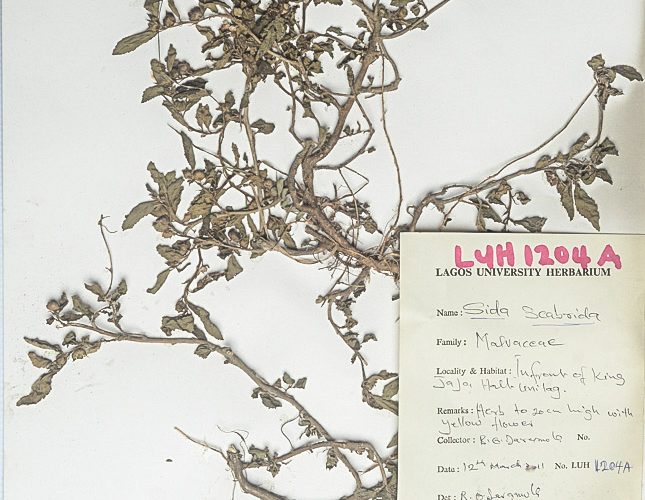 LUH 1204A
LAGOS UNIVERSITY HERBARIUM
Name: Sida Scabrida
Family: Malvaceae
Locality & Habitat: Infront of King
Jaja Hall Unilag.
Remarks: Herb to 20cm high with
yellow flower
Collector: No.
Date: 12th March 2011 No. LUH 1204A
Det: